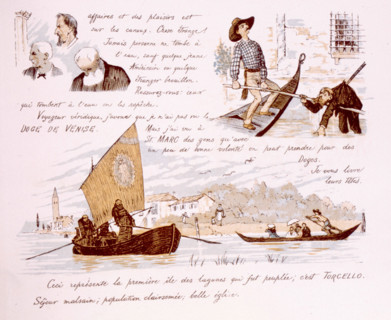 affaires et des plaisirs est
sur les canaux. Chose étrange!
Jamais personne ne tombe à
l'eau, sauf quelque jeune
Américain ou quelque
étranger brouillon.
Rassurez-vous: ceux
qui tombent à l'eau on les repêche.
Voyageur véridique, j'avoue que je n'ai pas vu le
DOGE DE VENISE. Mais j'ai vu à
St MARC des gens qu'avec
un peu de bonne volonté on peut prendre pour des
Doges.
Je vous livre
leurs têtes.
Ceci représente la première île des lagunes qui fut peuplée; c'est TORCELLO.
Séjour malsain; population clairsemée; belle église.